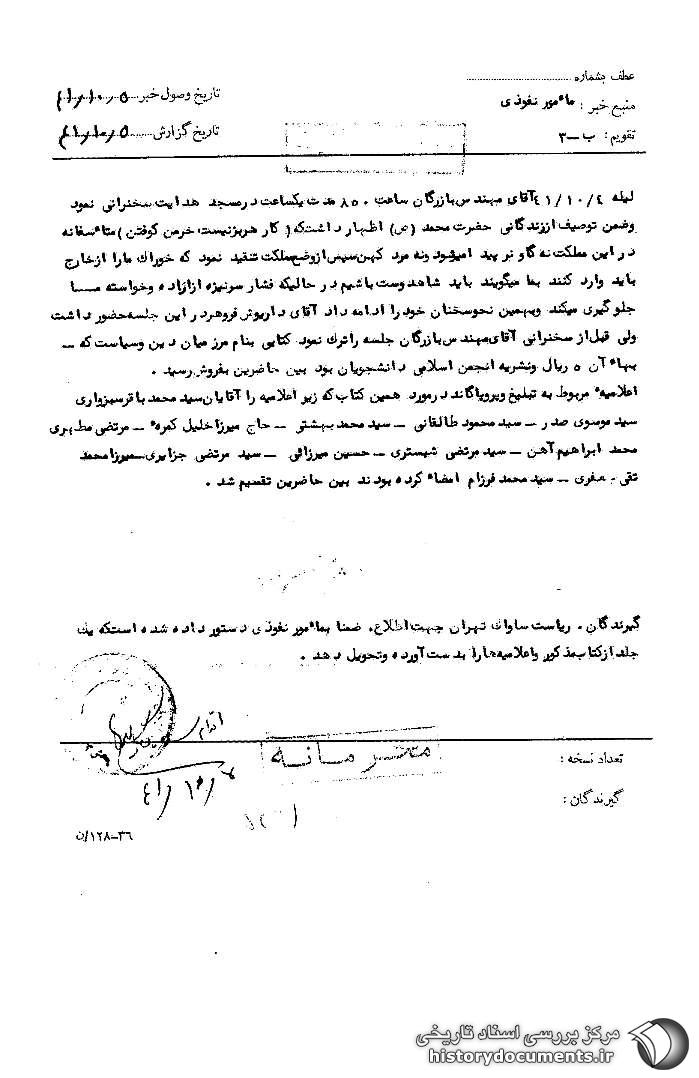 عطف بشماره
منبع خبر : مأمور نفوذی
تقویم : ب ــ ۳
تاریخ وصول خبر ۴۱/۱۰/۵
تاریخ گزارش ۴۱/۱۰/۵
لیله ۴۱/۱۰/۴ آقای مهندس بازرگان ساعت ۸۵۰ مدت یکساعت در مسجد هدایت سخنرانی نمود
وضمن توصیف اززندگانی حضرت محمد (ص) اظهار داشت که( کار هر بزنیست خرمن کوفتن )متأسفانه
در این مملکت نه گاو نر پیدا میشود ونه مرد کهن سپس از وضع مملکت تنقید نمود که خوراك مارا از خارج
باید وارد کنند بما میگویند باید شاهدوست باشیم در حالیکه فشار سرنیزه ازاراده وخواسته مــا
جلوگیری میکند وبهمین نحو سخنان خود را ادامه داد آقای داریوش فروهر در این جلسه حضور داشت
ولی قبل از سخنرانی آقای مهندس بازرگان جلسه را ترك نمود کتابی بنام مرز میان دین وسیاست که ــ
بهاء آن ۵ ریال ونشریه انجمن اسلامی دانشجویان بود بین حاضرین بفروش رسید .
اعلامیه مربوط به تبلیغ وپروپاگاند در مورد همین کتاب که زیر اعلامیه را آقایان سید محمد باقر سبزواری
سید موسوی صدر ــ سید محمود طالقانی ــ سید محمد بهشتی ــ حاج میرزا خلیل کمره ــ مرتضی مطهری
محمد ابراهیم آهن ــ سید مرتضی شبستری ــ حسین میرزائی ــ سید مرتضی جزایری ــ میرزا محمد
تقی جعفری ــ سید محمد فرزام امضاء کرده بودند بین حاضرین تقسیم شد .
گیرندگان . ریاست ساواك تهران جهت اطلاع. ضمنا بمأمور نفوذی دستور داده شده است که یك
جلد از کتاب مذکور واعلامیه ها را بدست آورده وتحویل دهد .
اقدام
۴۱/۱۰/۷
محرمانه
تعداد نسخه :
گیرندگان :
۳۶–۱۲۸/ن
مرکز بررسی اسناد تاریخی
historydocuments.ir